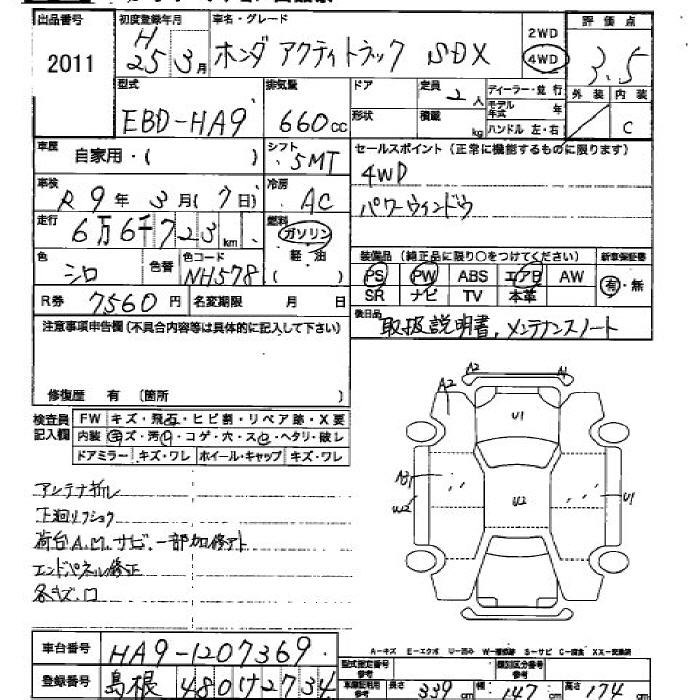 出品番号 2011
初度登録年月 H25 3月
車名・グレード ホンダ アクティトラック SDX
2WD 4WD
評価点 3.5
型式 EBD-HA9
排気量 660cc
ドア
形状
定員 2人
積載 kg
ディーラー・並行
モデル年式 年
ハンドル 左・右
外装 内装 C
車歴 自家用・( )
シフト 5MT
セールスポイント (正常に機能するものに限ります)
4WD
パワーウィンドウ
車検 R9年3月(7日)
冷房 AC
走行 6万6千723km
燃料 ガソリン 軽油 ( )
色 シロ 色替 色コード NH578
装備品 (純正品に限り○をつけてください) 新車保証書
PS PW ABS エアB AW 有・無
SR ナビ TV 本革
R券 7560円 名変期限 月 日
後日品 取扱説明書,メンテナンスノート
注意事項申告欄 (不具合内容等は具体的に記入して下さい)
修復歴 有 (箇所 )
検査員記入欄 FW キズ・飛石・ヒビ割・リペア跡・X要
内装 キズ・汚・コゲ・穴・スレ・ヘタリ・破レ
ドアミラー キズ・ワレ ホイール・キャップ キズ・ワレ
アンテナ折レ
下廻リフショク
荷台A.U.ナビ.一部加修アト
エンドパネル修正
各キズ.凹
A2 A1
A2 U1
U2
W2 U1
車台番号 HA9-1207369
登録番号 島根 480 2734
A-キズ E-エクボ U-凹み W-補修跡 S-サビ C-腐食 XX-交換済
型式指定番号 参考 類別区分番号 参考
車検証記載 参考 長さ 339cm 幅 147cm 高さ 174cm